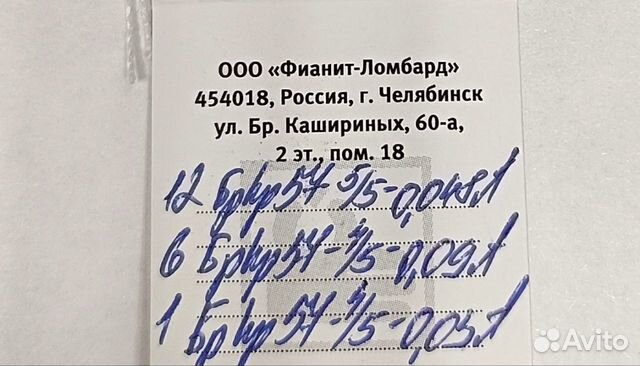 ООО «Фианит-Ломбард»
454018, Россия, г. Челябинск
ул. Бр. Кашириных, 60-а,
2 эт., пом. 18
12 Бркр57 5/5-0,048Л
6 Бркр57-4/5-0,09Л
1 Бркр57-4/5-0,03Л
Avito